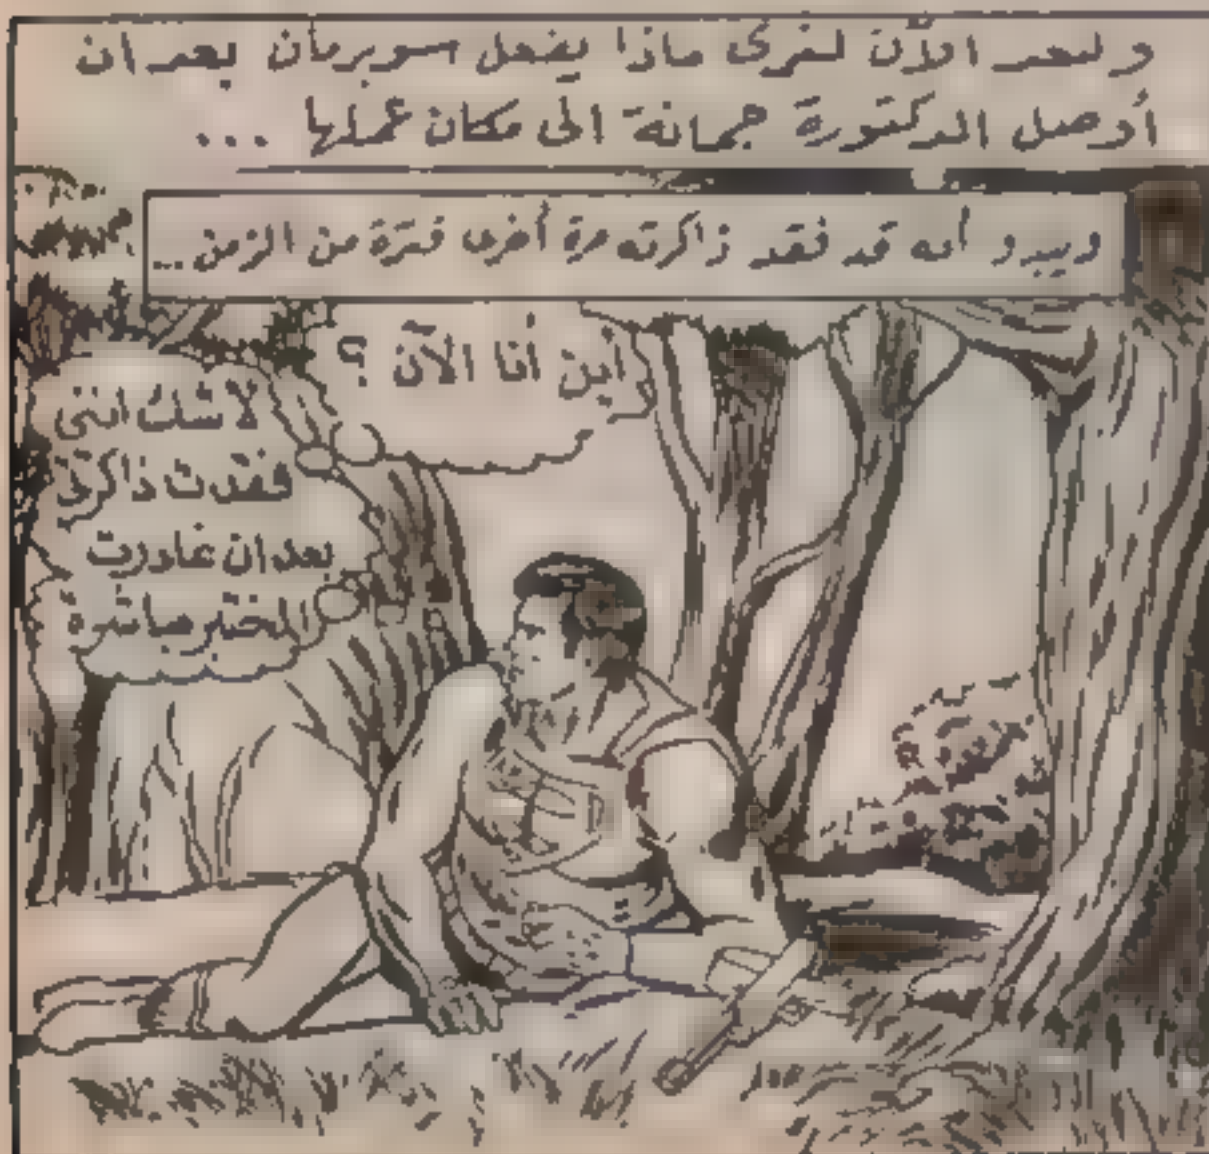 ولنعد الآن لنرى ماذا يفعل سوبرمان بعد ان
أوصل الدكتورة جمانة الى مكان عملها ...
ويبدو أنه قد فقد ذاكرته مرة أخرى فترة من الزمن ...
أين أنا الآن ؟
لا شك انني
فقدت ذاكرتي
بعد ان غادرت
المختبر مباشرة